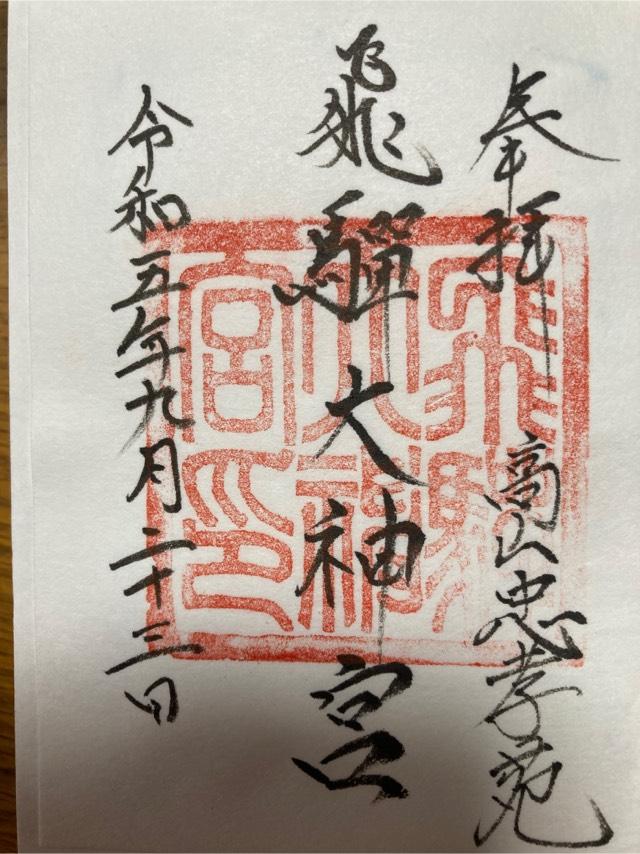 奉拝
高山忠孝苑
飛騨大神宮
令和五年九月二十三日
飛騨大神宮印